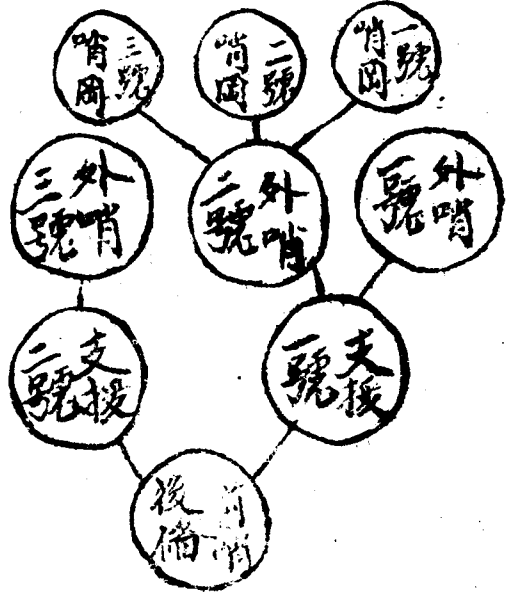 一號
哨岡
二號
哨岡
三號
哨岡
外哨
一號
外哨
二號
外哨
三號
支援
一號
支援
二號
前哨
後備